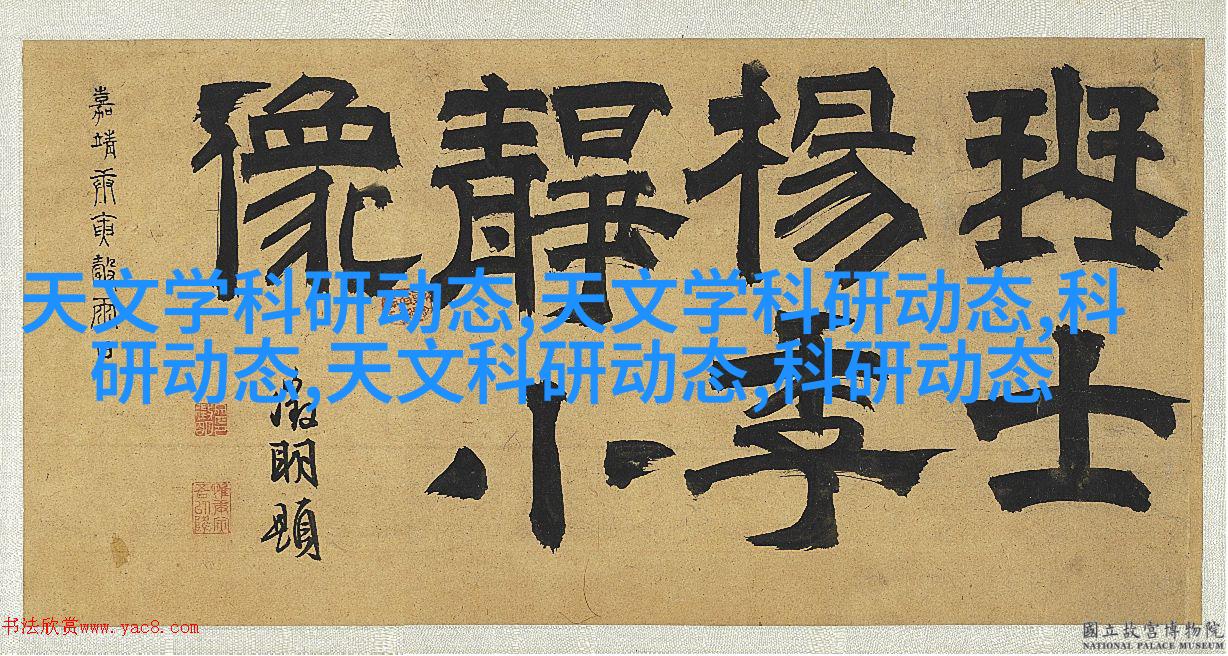 琴士
楊季
靜小
像
嘉靖庚寅穀雨日
徵明題
天文学科研动态,天文学科研动态,科
研动态,天文科研动态,科研动态
书法欣赏www.yac8.com
國立故宮博物院
NATIONAL PALACE MUSEUM